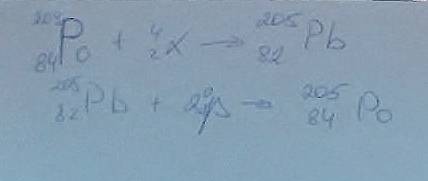 ²⁰⁹₈₄Po + ⁴₂α → ²⁰⁵₈₂Pb
²⁰⁵₈₂Pb + 2⁰β → ²⁰⁵₈₄Po